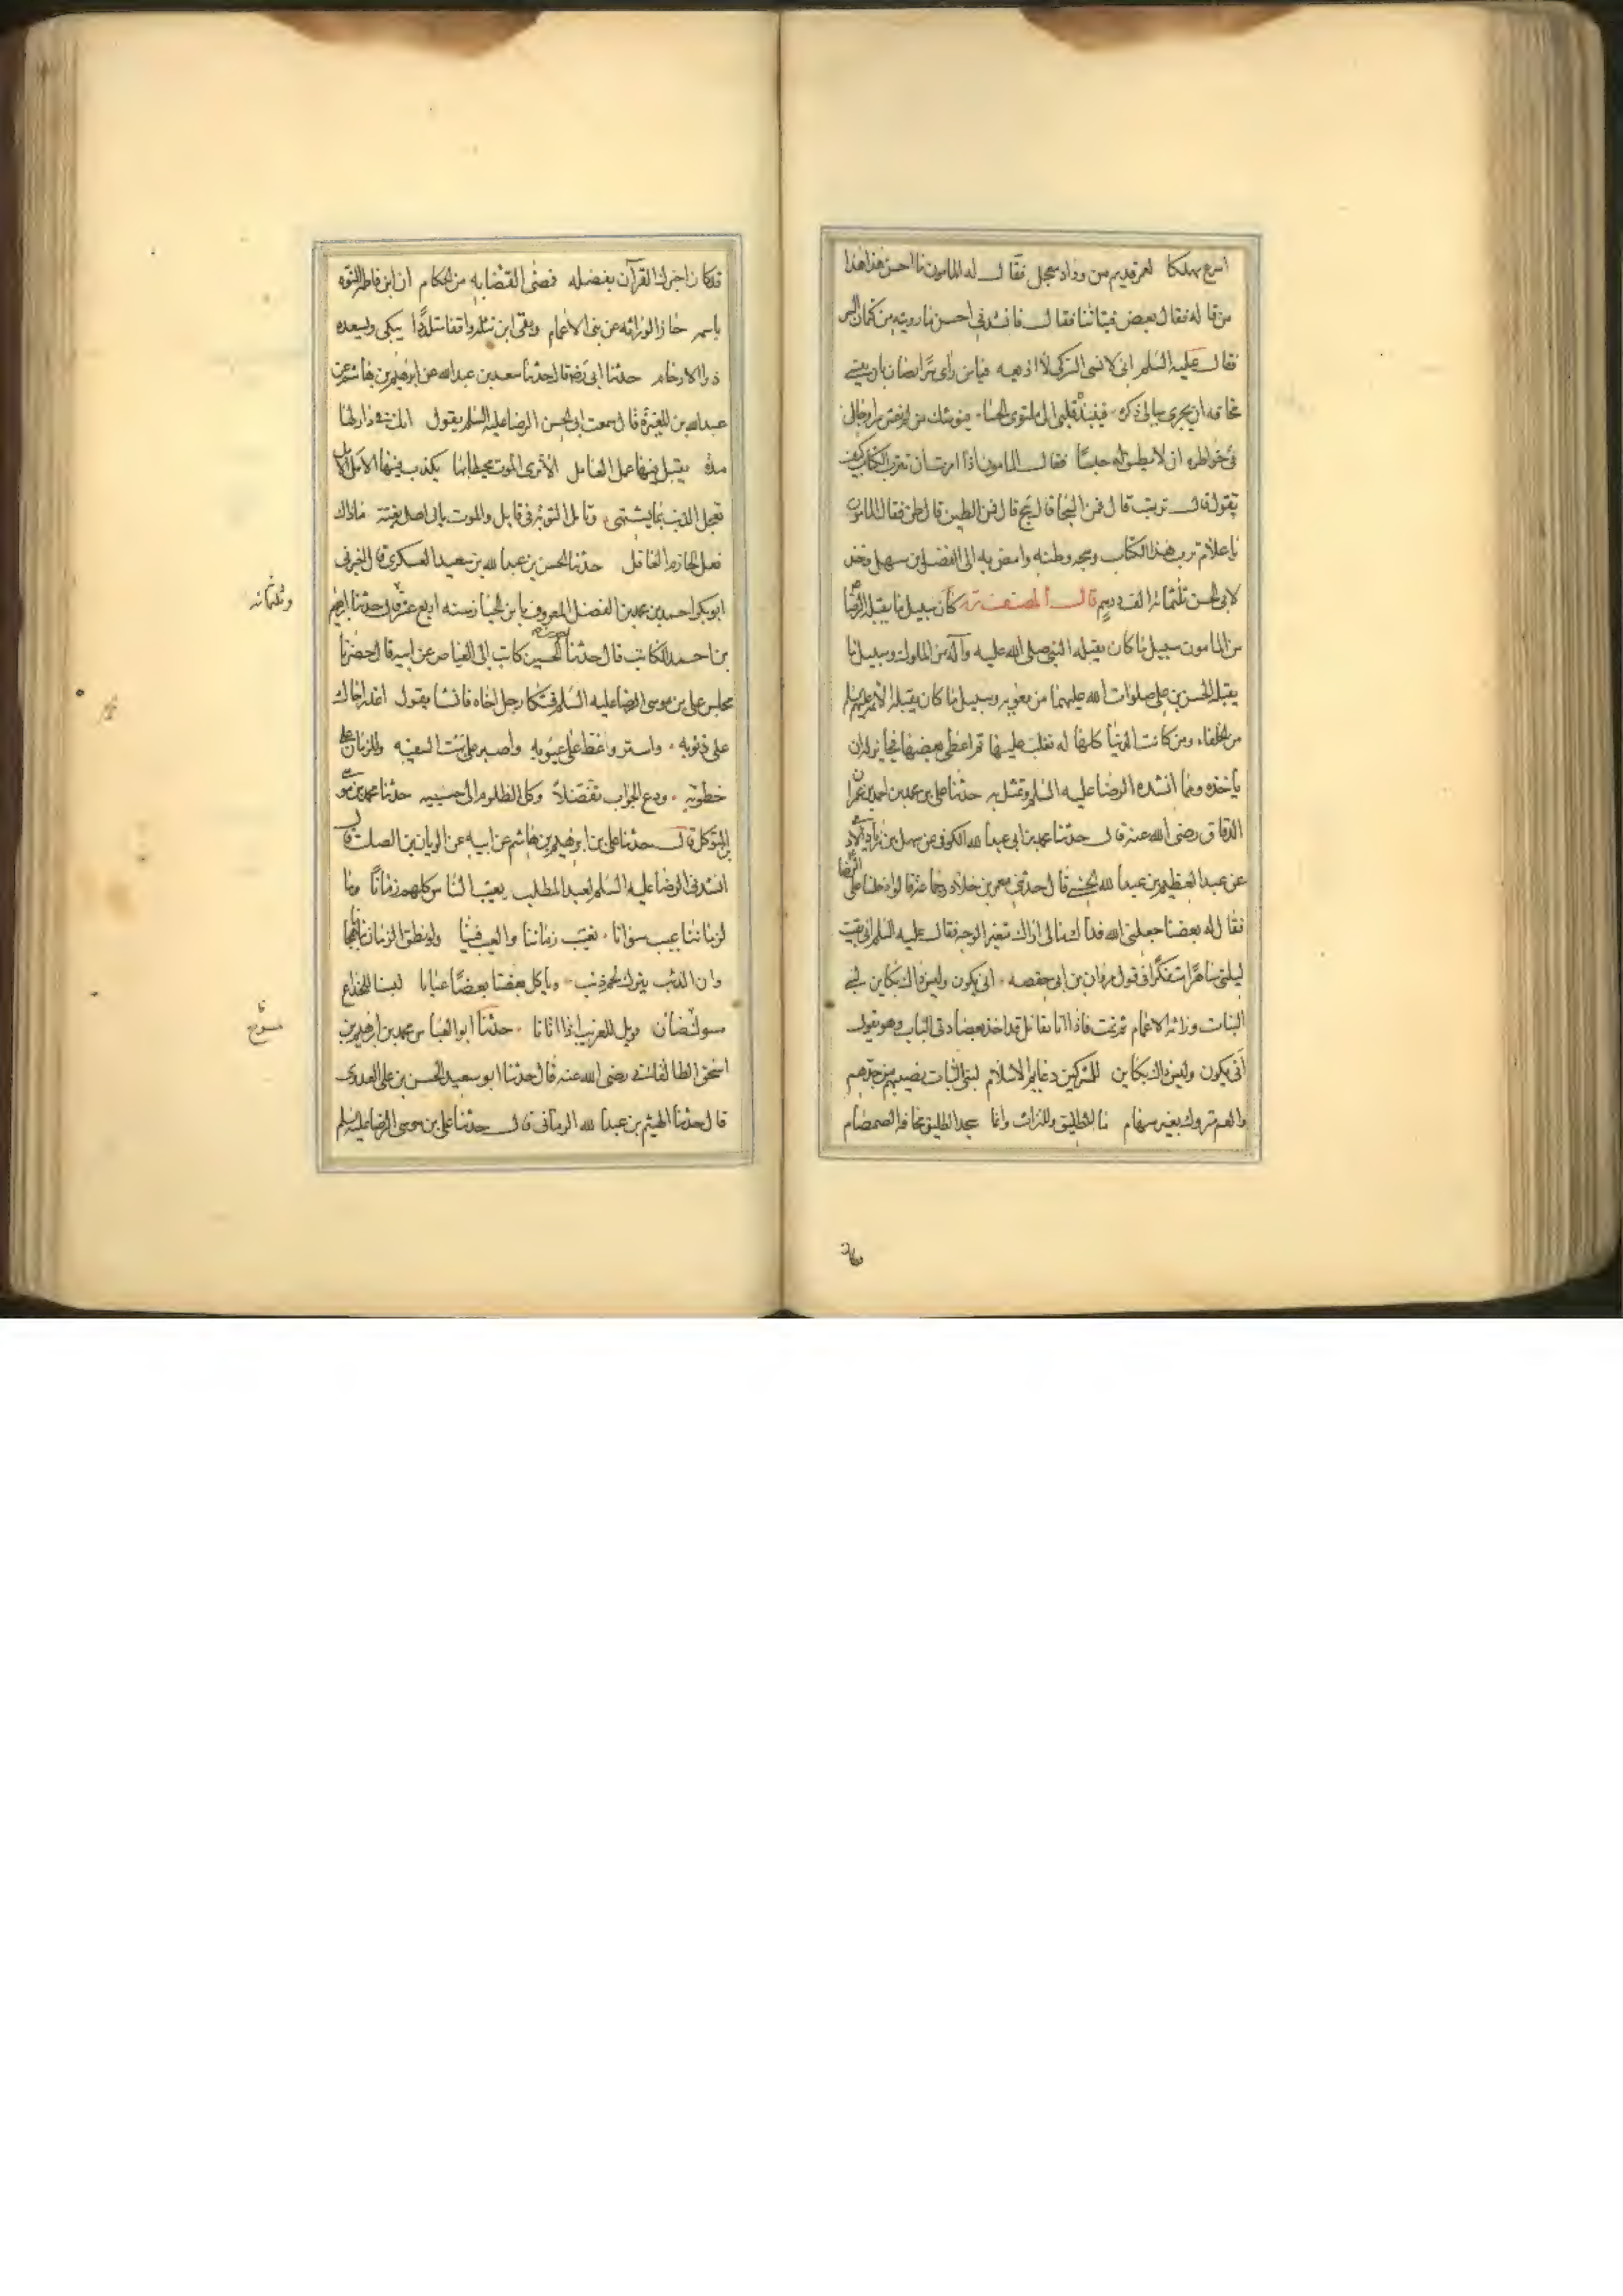 اسرع مهلكا لعمر قديم من وداد معجل فقال له المامون ما احسن هذا هذا
من قاله فقال بعض فتياننا فقال فانشدني احسن ما رويته من كتمان السر
فقال عليه السلم اني لانسى السر كيلا اذيعه فيا من راى سرا يصان بان ينسى
مخافه ان يجرى ببالى ذكره فينبذه قلبى الى ملتوى الحشا فيوشك من لم يفش سرا وجال
فى خواطره ان لا يطيق له حبسا فقال المامون اذا امرت ان تترب الكتاب كيف
تقول قال ترب قال فمن السحا قال سح قال فمن الطين قال طن فقال المامون
يا غلام ترب هذا الكتاب وسحه وطنه وامض به الى الفضل بن سهل وخذ
لابى الحسن ثلثمائة الف درهم قال المصنف كان سبيل ما يقبله الرضا
من المامون سبيل ما كان يقبله النبى صلى الله عليه وآله من الملوك وسبيل ما
يقبله الحسن بن على صلوات الله عليهما من معويه وسبيل ما كان يقبله الائمه عليهم السلم
من الخلفاء ومن كانت الدنيا كلها له فغلب عليها ثم اعطى بعضها فجايز له ان
يأخذه ومما انشده الرضا عليه السلم وتمثل به حدثنا على بن محمد بن احمد بن عمران
الدقاق رضى الله عنه قال حدثنا محمد بن ابى عبد الله الكوفى عن سهل بن زياد الآدمى
عن عبد العظيم بن عبد الله الحسنى قال حدثنى معمر بن خلاد وجماعة قالوا دخلنا على الرضا
فقال له بعضنا جعلنى الله فداك مالى اراك متغير الوجه فقال عليه السلم انى بقيت
ليلتى ساهرا متفكرا فى قول مروان بن ابى حفصه انى يكون وليس ذاك بكاين لبنى
البنات وراثة الاعمام ثم نمت فاذا انا بقائل قد اخذ بعضادتى الباب وهو يقول
أنى يكون وليس ذاك بكاين للمشركين دعايم الاسلام لبنى البنات نصيبهم من جدهم
والعم متروك بغير سهام ما للطليق وللتراث وانما سجد الطليق مخافة الصمصام
قد كان اخبرك القرآن بفضله فمضى القضا به من الحكام ان ابن فاطمة المنوه
باسمه حاز الوراثه عن بنى الاعمام وبقى ابن نثله واقفا متلددا يبكى ويسعده
ذوا الارحام حدثنا ابى رضه قال حدثنا سعد بن عبدالله عن ابرهيم بن هاشم عن
عبدالله بن المغيرة قال سمعت ابى الحسن الرضا عليه السلم يقول انك فى دار لها
مدة يقبل فيها عمل العامل الا ترى الموت محيطا بها يكذب فيها الامل الآمل
تعجل الذنب بما يشتهى وتامل التوبة فى قابل والموت ياتى اهله بغتة ماذاك
فعل الحازم الغافل حدثنا الحسن بن عبد الله بن سعيد العسكرى قال اخبرنى
ابو بكر احمد بن محمد بن الفضل المعروف بابن الخباز سنه اربع عشر قال حدثنا ابرهيم
وثلثمائه
بن احمد الكاتب قال حدثنا احمد بن الحسين كاتب ابى الفياض عن ابيه قال حضرنا
مجلس على بن موسى الرضا عليه السلم فشكا رجل اخاه فانشا يقول اعذر اخاك
على ذنوبه واستر وغط على عيوبه واصبر على بهت السفيه وللزمان على
خطوبه ودع الجواب تفضلا وكل الظلوم الى حسيبه حدثنا محمد بن موسى
بن المتوكل قال حدثنا على بن ابرهيم بن هاشم عن ابيه عن الريان بن الصلت قال
انشدنى الرضا عليه السلم لعبد المطلب يعيب الناس كلهم زمانا وما
لزماننا عيب سوانا نعيب زماننا والعيب فينا ولو نطق الزمان بنا هجانا
وان الذئب يترك لحم ذئب وياكل بعضنا بعضا عيانا لبسنا للخداع
مسوك ضأن فويل للغريب اذا اتانا حدثنا ابو العباس محمد بن ابرهيم بن
مسوح
اسحق الطالقانى رضى الله عنه قال حدثنا ابو سعيد الحسن بن على العدوى
قال حدثنا الهيثم بن عبد الله الرمانى قال حدثنا على بن موسى الرضا عليه السلم